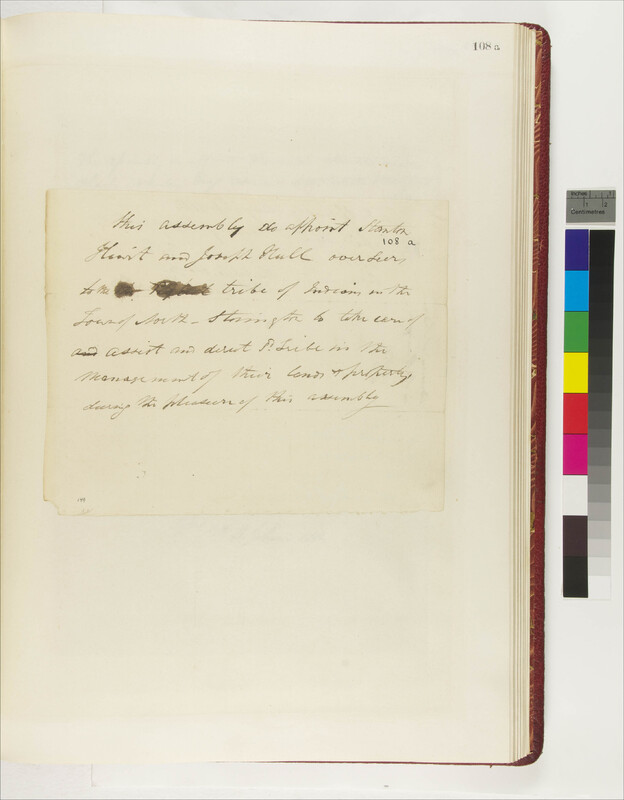 108 a
this assembly do appoint Stanton
108 a
Hewit and Joseph Hull overseers
to the tribe of Indians in the
Town of North-Stonington to take care of
and assist and direct sd. Tribe in the
management of their lands & property
during the pleasure of this assembly